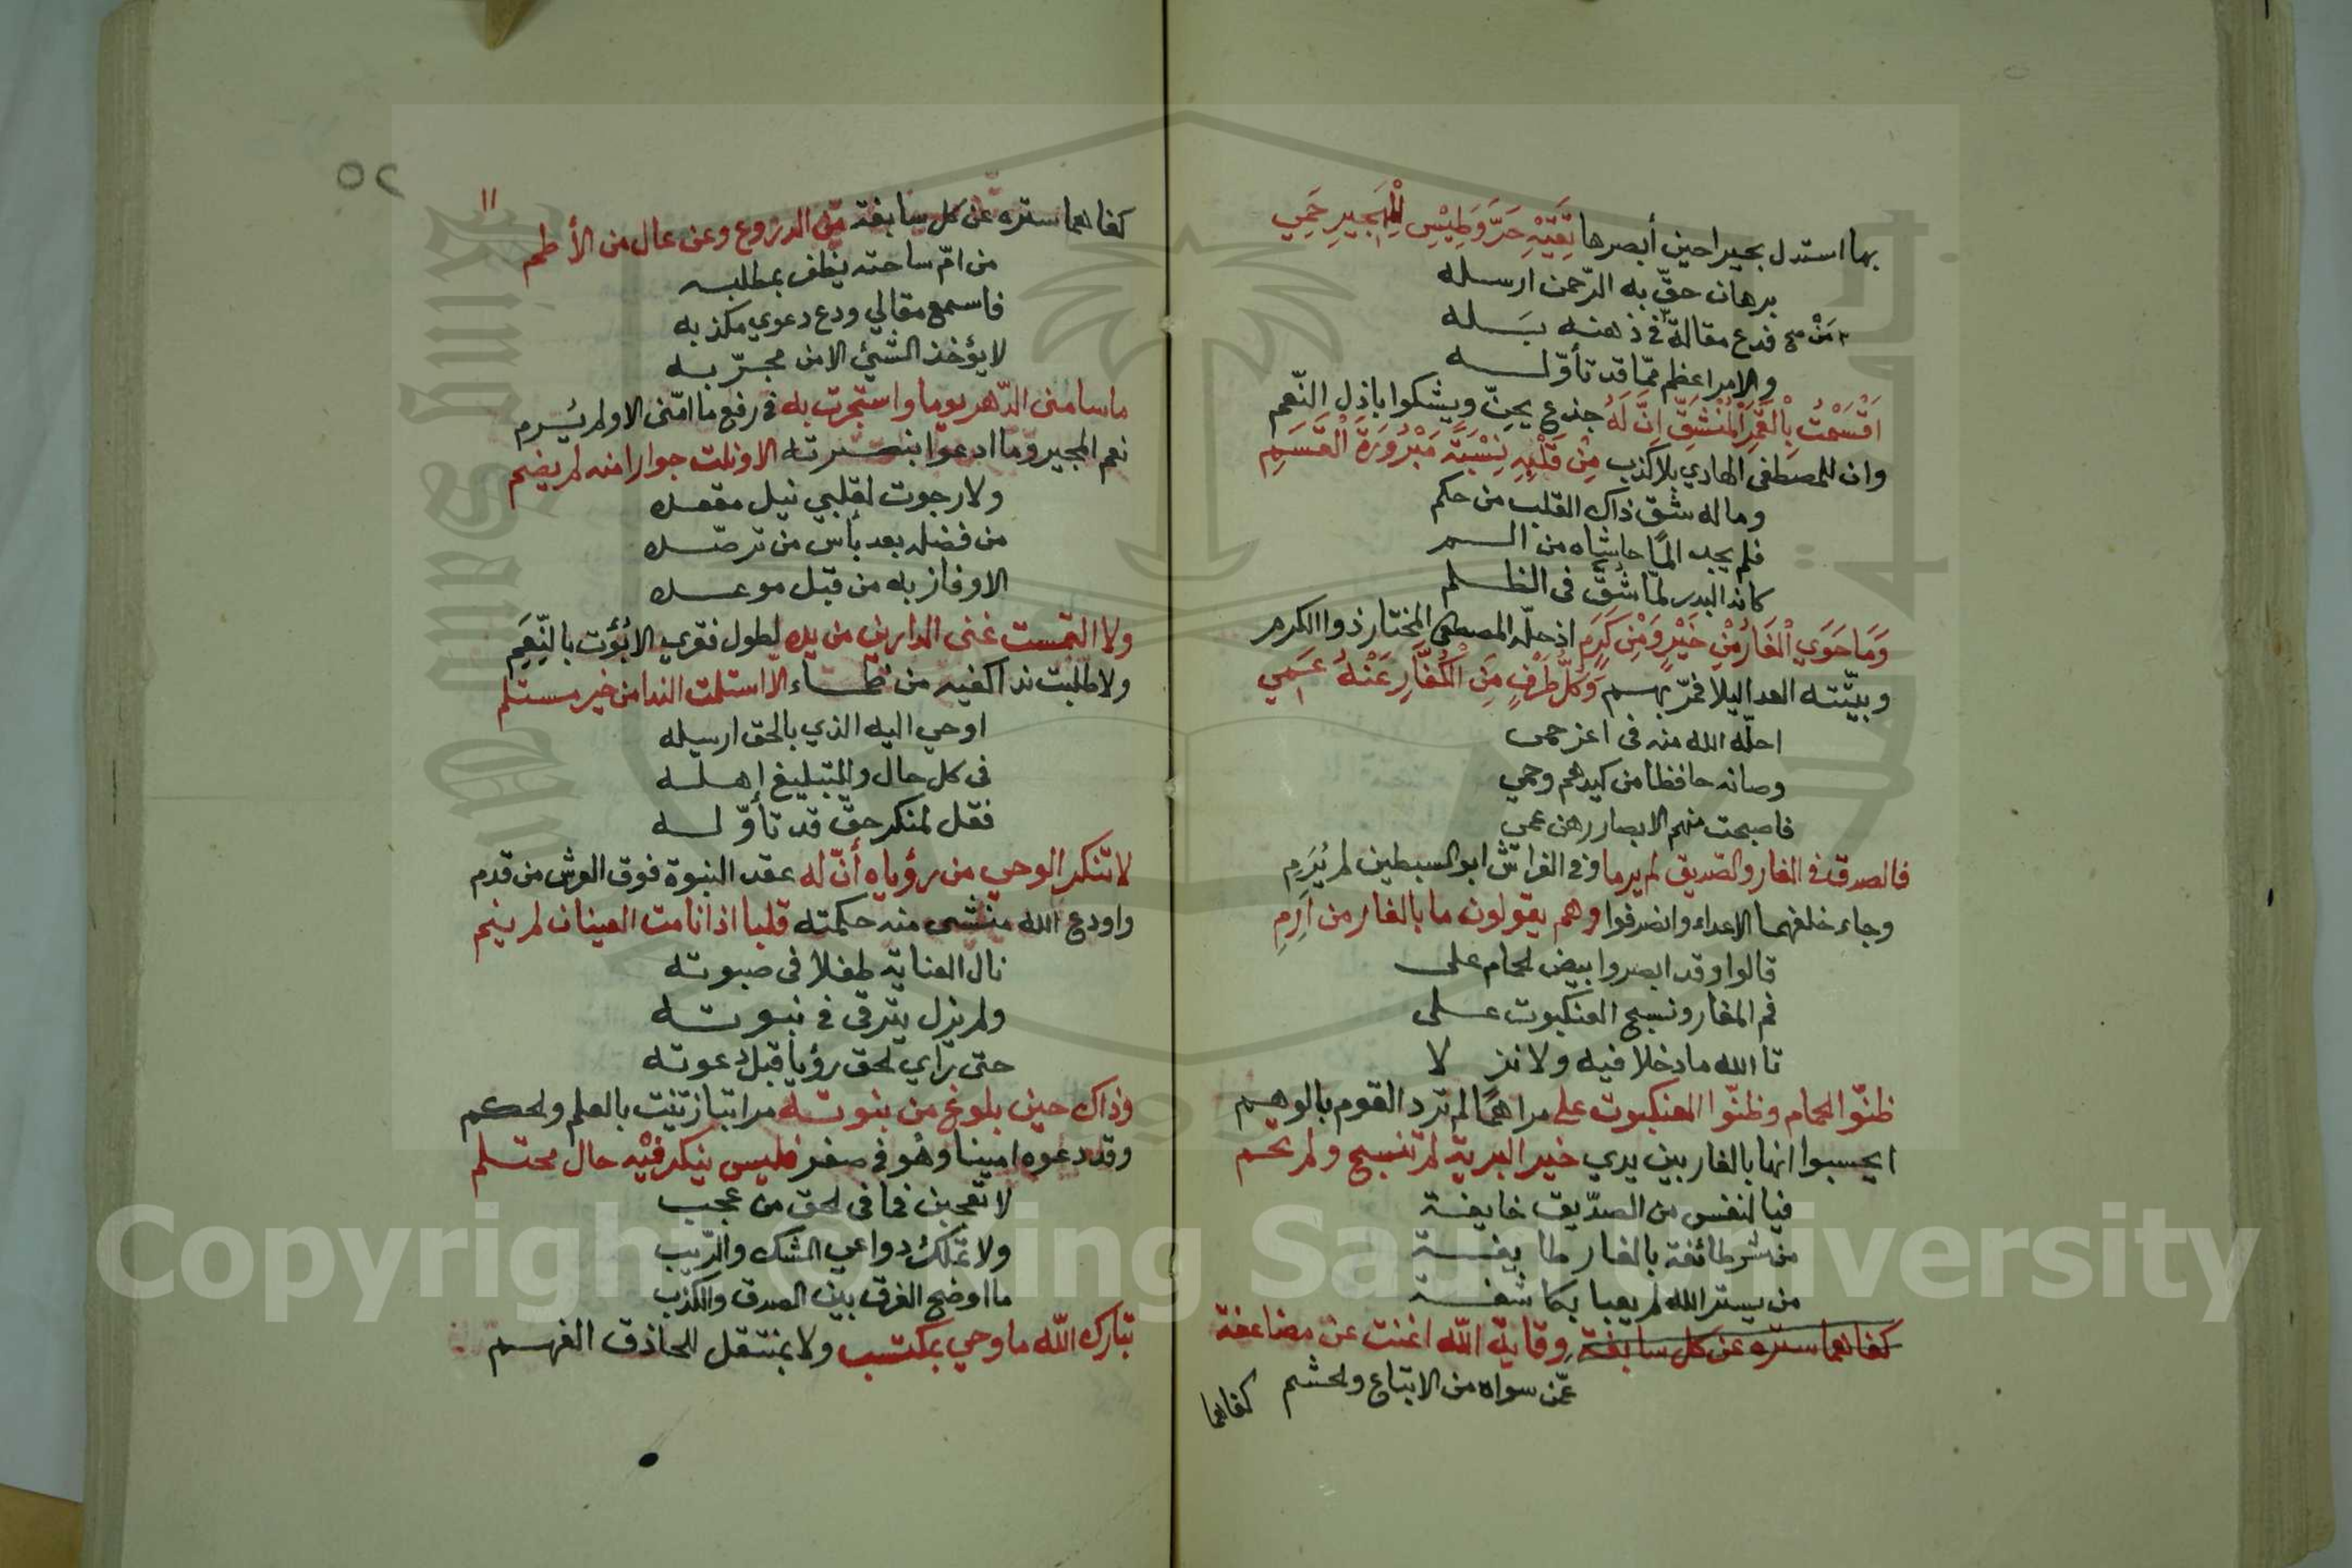 بها استدل بحيرا حين أبصرها تَقِيْهِ حَرَّ وَطِيْسٍ لِلْهَجِيرِ حَمِي
برهان حقّ به الرّحمن ارسله
فدع مقالة مَنْ في ذهنه بَسَله
والامر اعظم ممّا قد تأوّله
اَقْسَمْتُ بِالْقَمَرِ الْمُنْشَقِّ اِنَّ لَهُ جذع يحنّ ويشكوا باذل النّعم
وان للمصطفى الهادي بلا كذب مِنْ قَلْبِهِ نِسْبَةً مَبْرُوْرَةَ الْقَسَمِ
وماله شق ذاك القلب من حكم
فلم يجد المًا حاشاه من السم
كانه البدر لمّا شُقَّ فى الظلم
وَمَا حَوَي الْغَارُ مِنْ خَيْرٍ وَمْنِ كَرَمِ اذ حلّه المصطفى المختار ذوا الكرم
وبيّتته العدا ليلا فمرّ بهم وَكُلُّ طَرْفٍ مِنَ الْكُفَّارِ عَنْهُ عَمِي
احلّه الله منه فى اعز حمى
وصانه حافظا من كيدهم وحمي
فاصبحت منهم الابصار رهن عمي
فالصدق في الغار والصديق لم يرما وفي الفراش ابو السبطين لم يُرَمِ
وجاء خلفهما الاعداء وانصرفوا وهم يقولون ما بالغار من اَرِمِ
قالوا وقد ابصروا بيض الحمام على
فم المغار ونسج العنكبوت على
تا الله ما دخلا فيه ولا نزلا
ظنّوا الحمام وظنّوا العنكبوت على مراهمًا لم ترد القوم بالوهم
ايحسبوا انها بالغار بين يدي خير البرية لم تنسج ولم تحم
فيا لنفس من الصدّيق خايفة
من شر طائفة بالغار طايفة
من يستر الله لم يعبا بكاشفة
كفاهما ستره عن كل سابغة وقاية الله اغنت عن مضاعفة
عمّن سواه من الاتباع والحشم
كفاهما
٥٢
١١
كفاهما ستره عن كل سابغة من الدروع وعن عال من الأطم
من امّ ساحته يظفر بمطلبه
فاسمع مقالي ودع دعوي مكذبه
لا يؤخذ الشيئ الا من مجرّبه
ما سامنى الدّهر يوما واستجرت به في رفع ما امّنى الا ولم يُرم
نعم المجير وما ادعوا بنصرته الا ونلت جوارا منه لم يضم
ولا رجوت لقلبي نيل مقصده
من فضله بعد يأس من ترصّده
الا وفاز به من قبل موعده
ولا التمست غنى الدارين من يده لطول فقري الا بُؤت بالنِّعَمِ
ولا طلبت ندا كفيه من ظماء الّا استلمت الندا من خير مستلم
اوحي اليه الذي بالحق ارسله
فى كل حال والتبليغ اهله
فقل لمنكر حقّ قد تأوّله
لا تنكر الوحي من رؤياه أنّ له عقد النبوة فوق العرش من قدم
واودع الله منشى منه حكمته قلبا اذا نامت العينان لم ينم
نال العناية طفلا فى صبوته
ولم يزل يترقى في نبوته
حتى رأي الحق رؤيا قبل دعوته
وذاك حين بلوغ من نبوته مراتبا زينت بالعلم والحكم
وقد دعوه امينا وهو في صغر فليس ينكر فيْه حال محتلم
لا تعجبن فما فى الحق من عجب
ولا تملك دواعي الشك والرّيب
ما اوضح الفرق بين الصدق والكذب
تبارك الله ما وحي بمكتسب ولا بمنتقل للحاذق الفهم